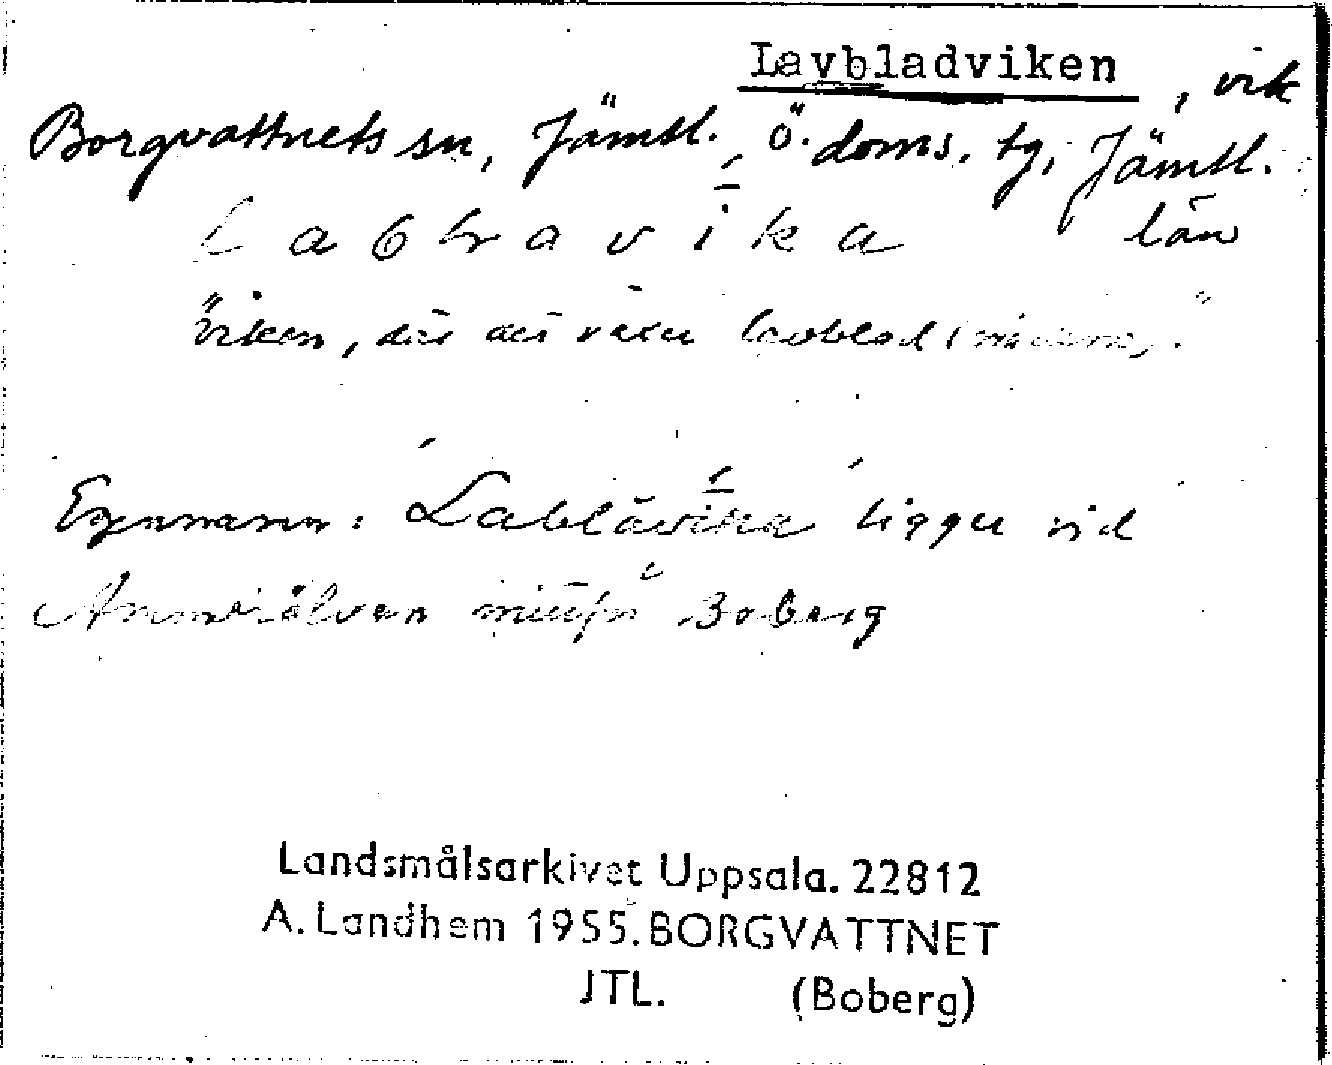 Lavbladviken, vik
Borgvattnets sn, Jämtl., Ö. doms. tg, Jämtl.
län
"viken, där det växer lavblad
Egennamn: ligger vid
Ammerälven Boberg
Landsmålsarkivet Uppsala. 22812
A. Landhem 1955. BORGVATTNET
JTL. (Boberg)